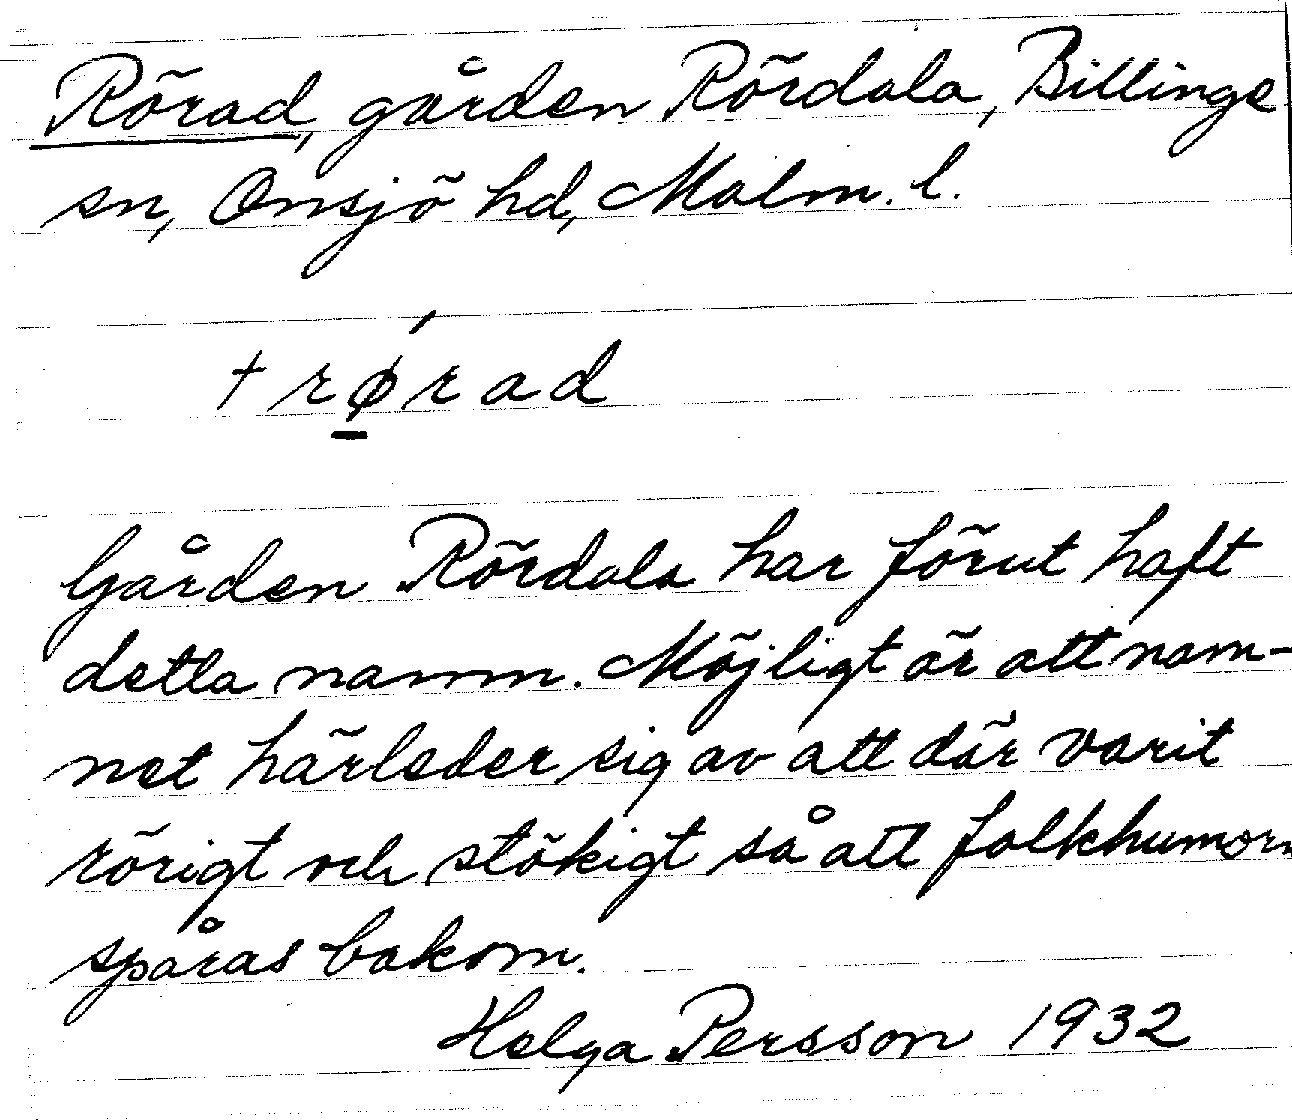 Rörad, gården Rördala, Billinge
sn, Onsjö hd, Malm. l.
† rǿ̱rad
Gården Rördala har förut haft
detta namn. Möjligt är att nam-
net härleder sig av att där varit
rörigt och stökigt så att folkhumorn
spåras bakom.
Helga Persson 1932